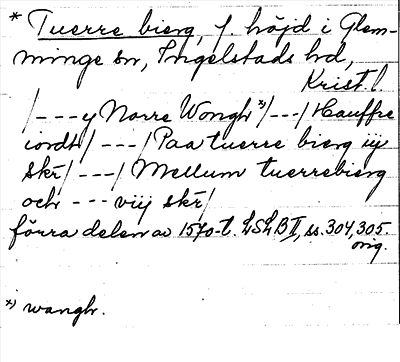 * Tuerre bierg, f. höjd i Glem-
minge sn, Ingelstads hd,
Krist l.
/---y Norre Wongh *)/---/ Hauffre
iordt/---/ Paa tuerre bierg iij
skr/---/ Mellum tuerrebierg
och --- viij skr/
förra delen av 1570-t. LSLB II, ss. 304, 305.
orig.
*) wangh.